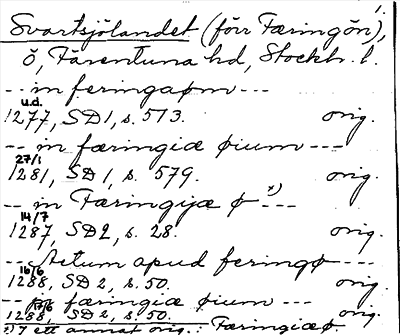 1.
Svartsjölandet (förr Färingön),
ö, Färentuna hd, Stockh. l.
-- in feringaøm ---
u.d.
1277, SD 1, s. 513. orig.
-- in færingiæ øium ---
27/1
1281, SD 1, s. 579. orig.
-- in Færingiyæ ø x) ---
14/7
1287, SD 2, s. 28. orig.
-- Actum apud feringø ---
16/6
1288, SD 2, s. 50. orig.
-- færingiæ øium ---
17/6
1288, SD 2, s. 50. orig.
x) I ett annat orig.: Færingiæø.